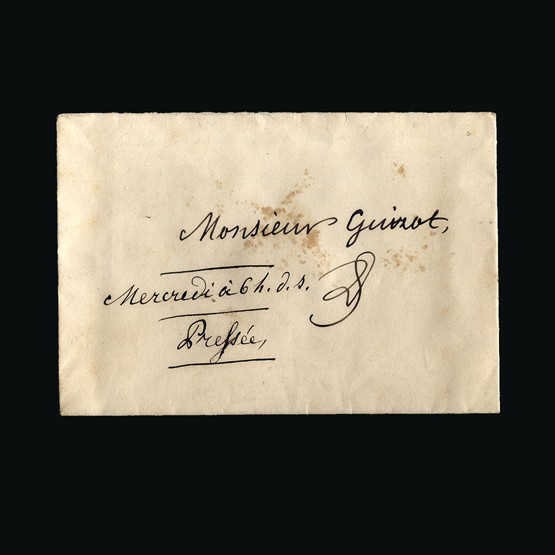 Monsieur Guizot,
Mercredi à 6 h. d. s.
Pressée,